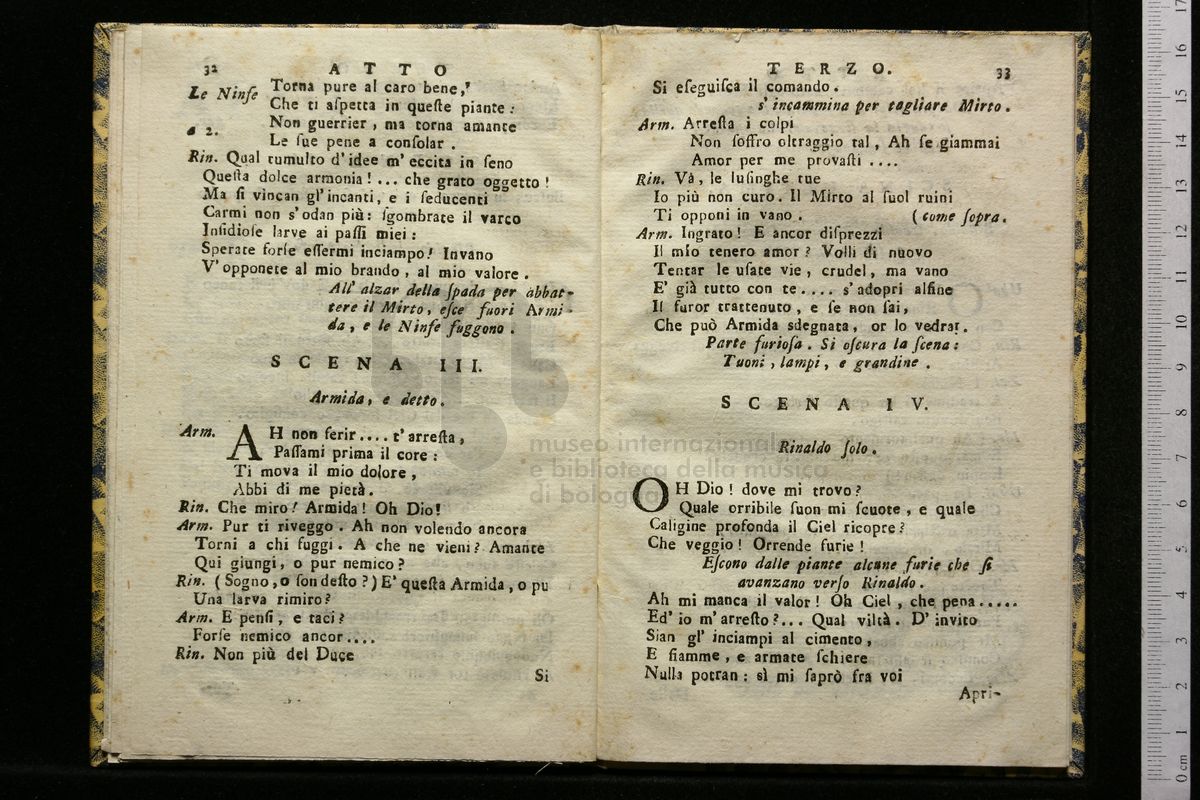 32 ATTO
Le Ninfe Torna pure al caro bene,
Che ti aſpetta in queſte piante:
a 2. Non guerrier, ma torna amante
Le ſue pene a conſolar.
Rin. Qual tumulto d'idee m'eccita in ſeno
Queſta dolce armonia!... che grato oggetto!
Ma ſi vincan gl'incanti, e i ſeducenti
Carmi non s'odan più: ſgombrate il varco
Inſidioſe larve ai paſſi miei:
Sperate forſe eſſermi inciampo! Invano
V'opponete al mio brando, al mio valore.
All' alzar della ſpada per abbat-
tere il Mirto, eſce fuori Armi-
da, e le Ninfe fuggono.
SCENA III.
Armida, e detto.
Arm. AH non ferir.... t'arreſta,
Paſſami prima il core:
Ti mova il mio dolore,
Abbi di me pietà.
Rin. Che miro! Armida! Oh Dio!
Arm. Pur ti riveggo. Ah non volendo ancora
Torni a chi fuggi. A che ne vieni? Amante
Qui giungi, o pur nemico?
Rin. (Sogno, o ſon deſto?) E' queſta Armida, o pu
Una larva rimiro?
Arm. E penſi, e taci?
Forſe nemico ancor....
Rin. Non più del Duce
Si
TERZO. 33
Si eſeguiſca il comando.
s'incammina per tagliare Mirto.
Arm. Arreſta i colpi
Non ſoffro oltraggio tal, Ah ſe giammai
Amor per me provaſti....
Rin. Và, le luſinghe tue
Io più non curo. Il Mirto al ſuol ruini
Ti opponi in vano. (come ſopra.
Arm. Ingrato! E ancor diſprezzi
Il mio tenero amor? Volli di nuovo
Tentar le uſate vie, crudel, ma vano
E' già tutto con te.... s'adopri alfine
Il furor trattenuto, e ſe non ſai,
Che può Armida sdegnata, or lo vedrai.
Parte furioſa. Si oſcura la ſcena:
Tuoni, lampi, e grandine.
SCENA IV.
Rinaldo ſolo.
OH Dio! dove mi trovo?
Quale orribile ſuon mi ſcuote, e quale
Caligine profonda il Ciel ricopre?
Che veggio! Orrende furie!
Eſcono dalle piante alcune furie che ſi
avanzano verſo Rinaldo.
Ah mi manca il valor! Oh Ciel, che pena.....
Ed' io m'arreſto?... Qual viltà. D'invito
Sian gl'inciampi al cimento,
E fiamme, e armate ſchiere
Nulla potran: sì mi ſaprò fra voi
Apri-
museo internazionale
e biblioteca della musica
di bologna
0 cm 1 2 3 4 5 6 7 8 9 10 11 12 13 14 15 16 17